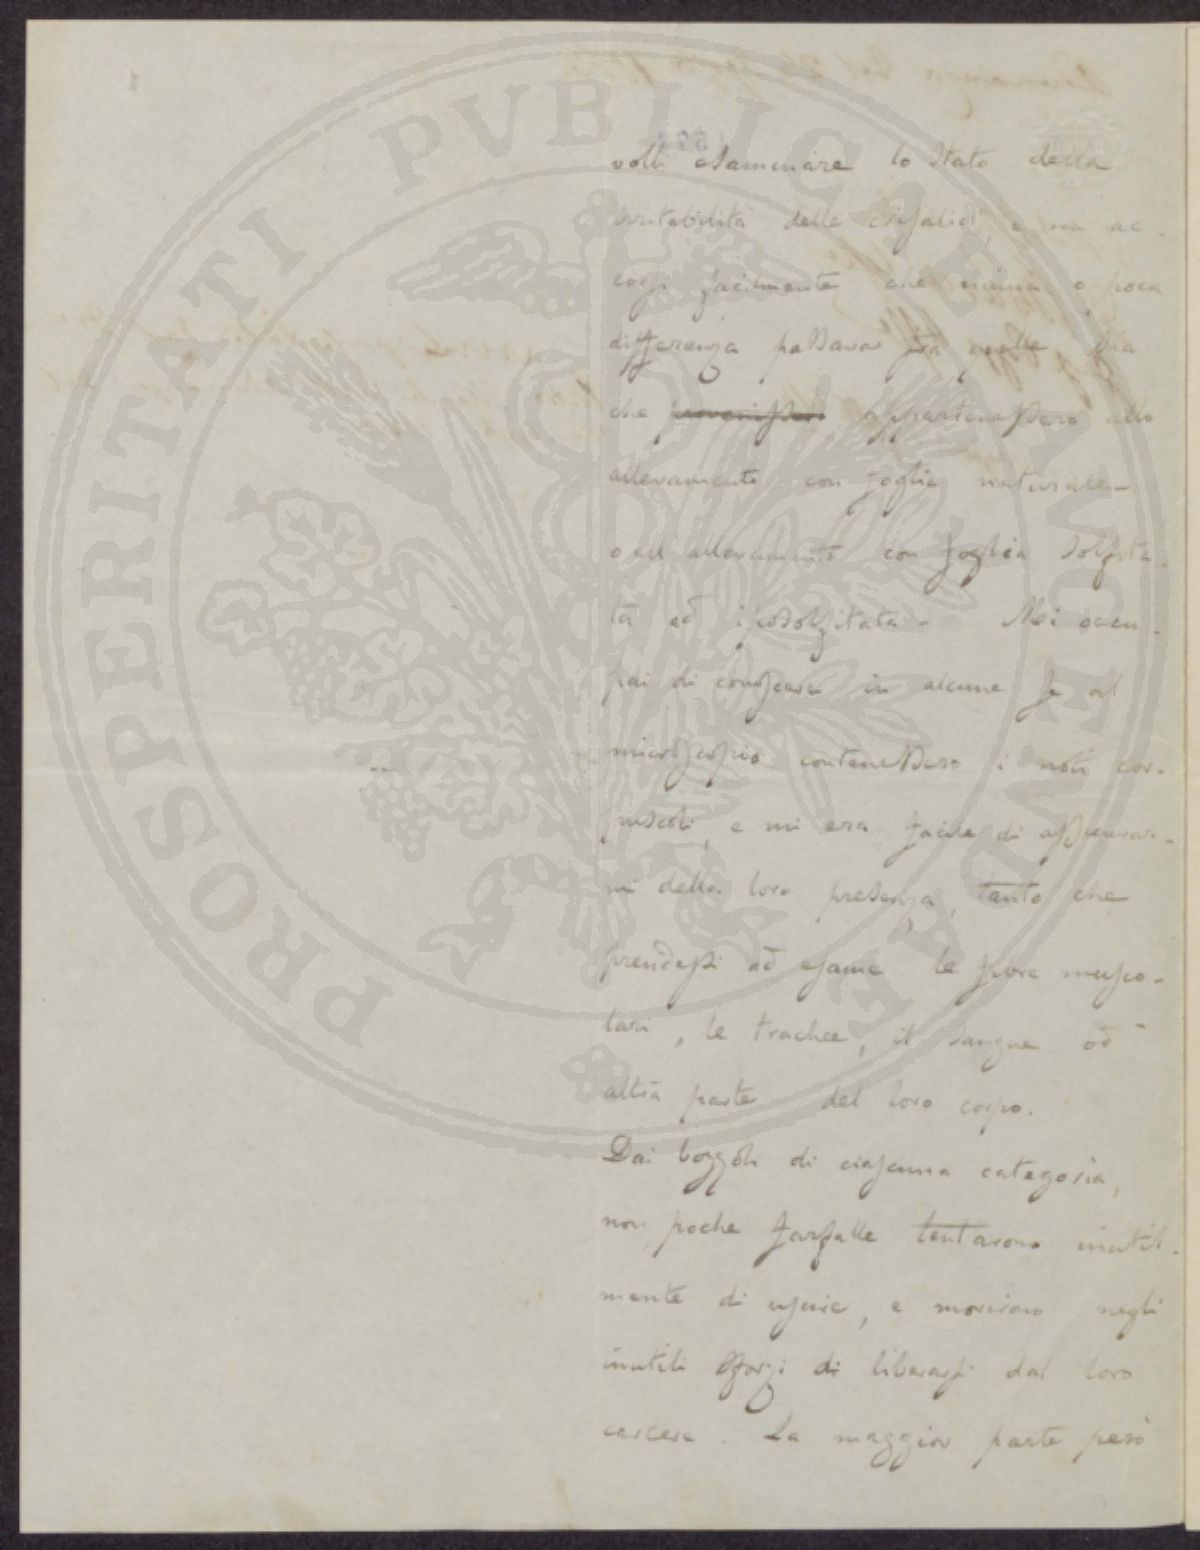 PROSPERITATI PUBLICAE AUGENDAE
volli esaminare lo stato della
irritabilità delle crisalidi, e mi ac-
corsi facilmente che niuna o poca
differenza passava fra quelle sia
che provenissero appartenessero allo
allevamento con foglia naturale
o all'allevamento con foglia solfita-
ta ed iposolfitata. Mi occu-
pai di conoscere in alcune se al
microscopio contenessero i noti cor-
puscoli, e mi era facile di assicurar-
mi della loro presenza, tanto che
prendessi ad esame le fibre musco-
lari, le trachee, il sangue od
altra parte del loro corpo.
Dai bozzoli di ciascuna categoria,
non poche farfalle tentarono inutil-
mente di uscire, e morirono negli
inutili sforzi di liberarsi dal loro
carcere. La maggior parte però